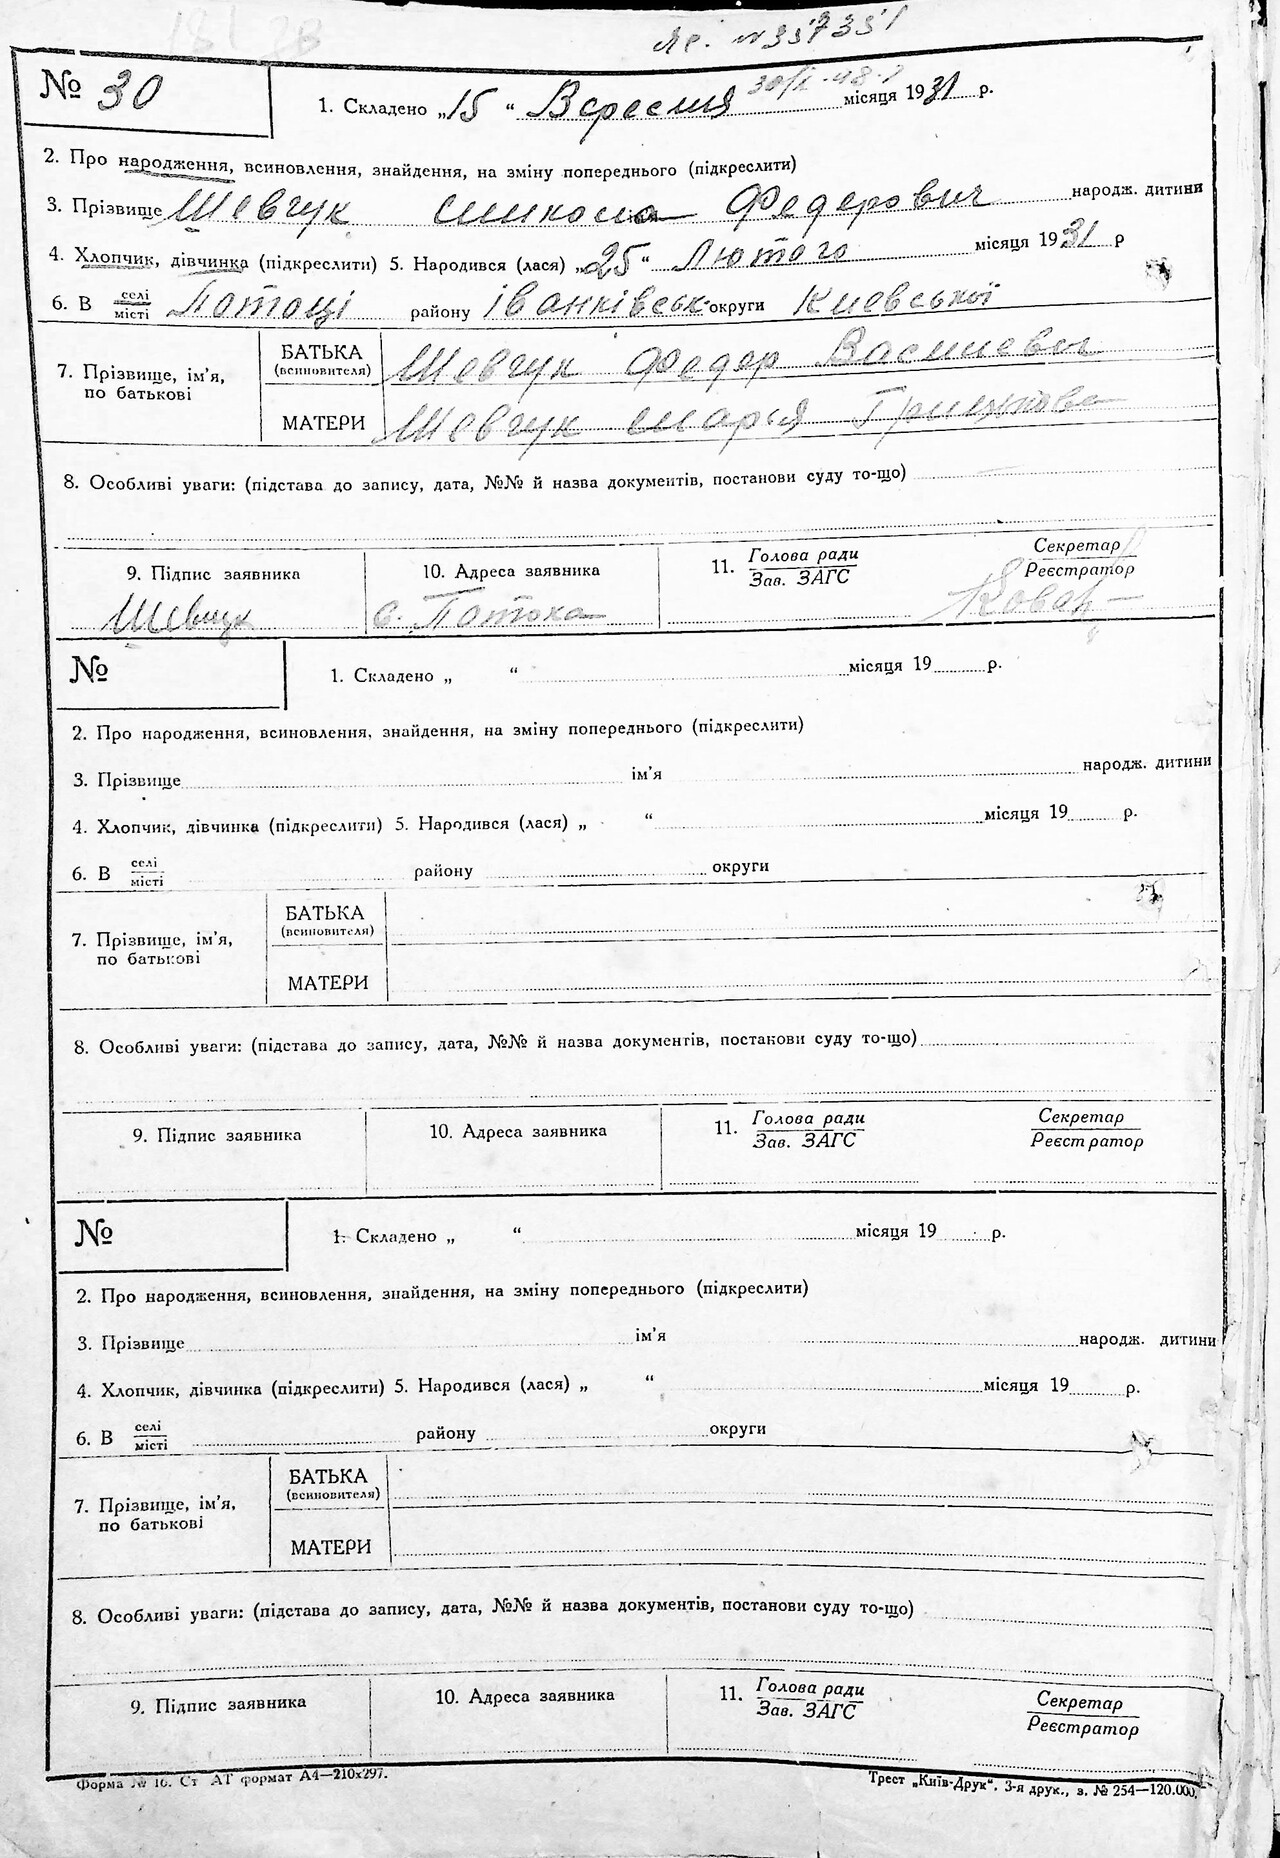 № 30
1. Складено „15“ Вересня місяця 1931 р.
2. Про народження, всиновлення, знайдення, на зміну попереднього (підкреслити)
3. Прізвище Шевчук Микола Федерович народж. дитини
4. Хлопчик, дівчинка (підкреслити) 5. Народився (лася) „25“ Лютого місяця 1931 р
6. В селі/місті Патоці району Іванківськ округи Киевської
7. Прізвище, ім'я, по батькові
БАТЬКА (всиновителя) Шевчук Федер Василиевич
МАТЕРИ Шевчук Марья
8. Особливі уваги: (підстава до запису, дата, №№ й назва документів, постанови суду то-що)
9. Підпис заявника
10. Адреса заявника
11. Голова ради / Зав. ЗАГС
Секретар / Реєстратор
Шевчук с. Патока
№
1. Складено „ “ місяця 19 р.
2. Про народження, всиновлення, знайдення, на зміну попереднього (підкреслити)
3. Прізвище ім'я народж. дитини
4. Хлопчик, дівчинка (підкреслити) 5. Народився (лася) „ “ місяця 19 р.
6. В селі/місті району округи
7. Прізвище, ім'я, по батькові
БАТЬКА (всиновителя)
МАТЕРИ
8. Особливі уваги: (підстава до запису, дата, №№ й назва документів, постанови суду то-що)
9. Підпис заявника
10. Адреса заявника
11. Голова ради / Зав. ЗАГС
Секретар / Реєстратор
№
1. Складено „ “ місяця 19 р.
2. Про народження, всиновлення, знайдення, на зміну попереднього (підкреслити)
3. Прізвище ім'я народж. дитини
4. Хлопчик, дівчинка (підкреслити) 5. Народився (лася) „ “ місяця 19 р.
6. В селі/місті району округи
7. Прізвище, ім'я, по батькові
БАТЬКА (всиновителя)
МАТЕРИ
8. Особливі уваги: (підстава до запису, дата, №№ й назва документів, постанови суду то-що)
9. Підпис заявника
10. Адреса заявника
11. Голова ради / Зав. ЗАГС
Секретар / Реєстратор
Форма № 16. Ст АТ формат А4—210х297.
Трест „Київ-Друк“. 3-я друк., з. № 254—120.000.